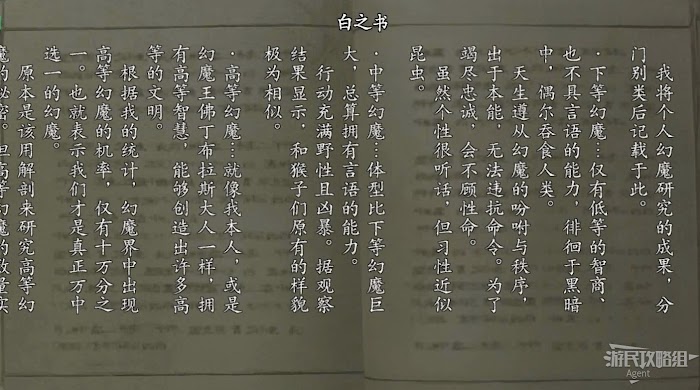 白之书
我将个人幻魔研究的成果，分
门别类后记载于此。
·下等幻魔…仅有低等的智商、
也不具言语的能力，徘徊于黑暗
中，偶尔吞食人类。
天生遵从幻魔的吩咐与秩序，
出于本能，无法违抗命令。为了
竭尽忠诚，会不顾性命。
虽然个性很听话，但习性近似
昆虫。
·中等幻魔…体型比下等幻魔巨
大，总算拥有言语的能力。
行动充满野性且凶暴。据观察
结果显示，和猴子们原有的样貌
极为相似。
·高等幻魔…就像我本人，或是
幻魔王佛丁布拉斯大人一样，拥
有高等智慧，能够创造出许多高
等的文明。
根据我的统计，幻魔界中出现
高等幻魔的机率，仅有十万分之
一。也就表示我们才是真正万中
选一的幻魔。
原本是该用解剖来研究高等幻
魔的秘密。但高等幻魔的数量实
游民攻略组
Agent